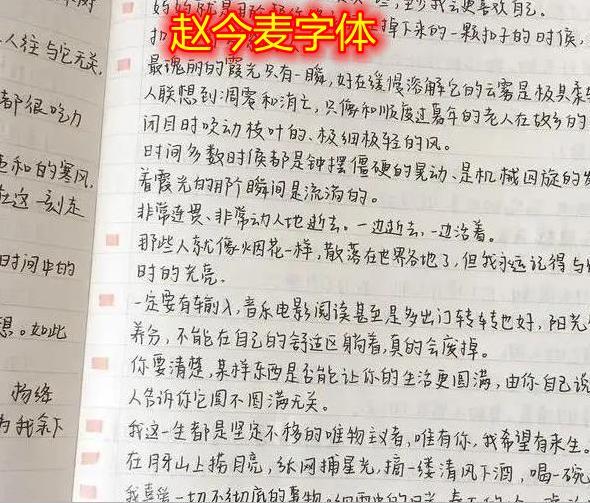 赵今麦字体
人往与它无关,
都很吃力
和的寒风,
在这一刻走
时间中的
想。如此
为我余下
最瑰丽的霞光只有一瞬,好在缓慢溶解它的云雾是极其柔
人联想到凋零和消亡,只像和顺度过暮年的老人在故乡的
闭目时吹动枝叶的、极细极轻的风。
时间多数时候都是钟摆僵硬的晃动、是机械回旋的
看霞光的那阶瞬间是流淌的。
非常连畏、非常动人地逝去。一边逝去,一边活着。
那些人就像烟花一样,散落在世界各地了,但我永远记得与
时的光亮。
一定要有输入,音乐电影阅读甚至是多出门转转也好,阳光
养分,不能在自己的舒适区躺着,真的会废掉。
你要清楚,某样东西是否能让你的生活更圆满,由你自己说
人告诉你它圆不圆满无关。
我这一生都是坚定不移的唯物主义者,唯有你,我希望有来生。
在月牙山上捞月亮,纸网捕星光,摘一缕清风下酒,喝一碗
我喜欢一切不彻底的事物。